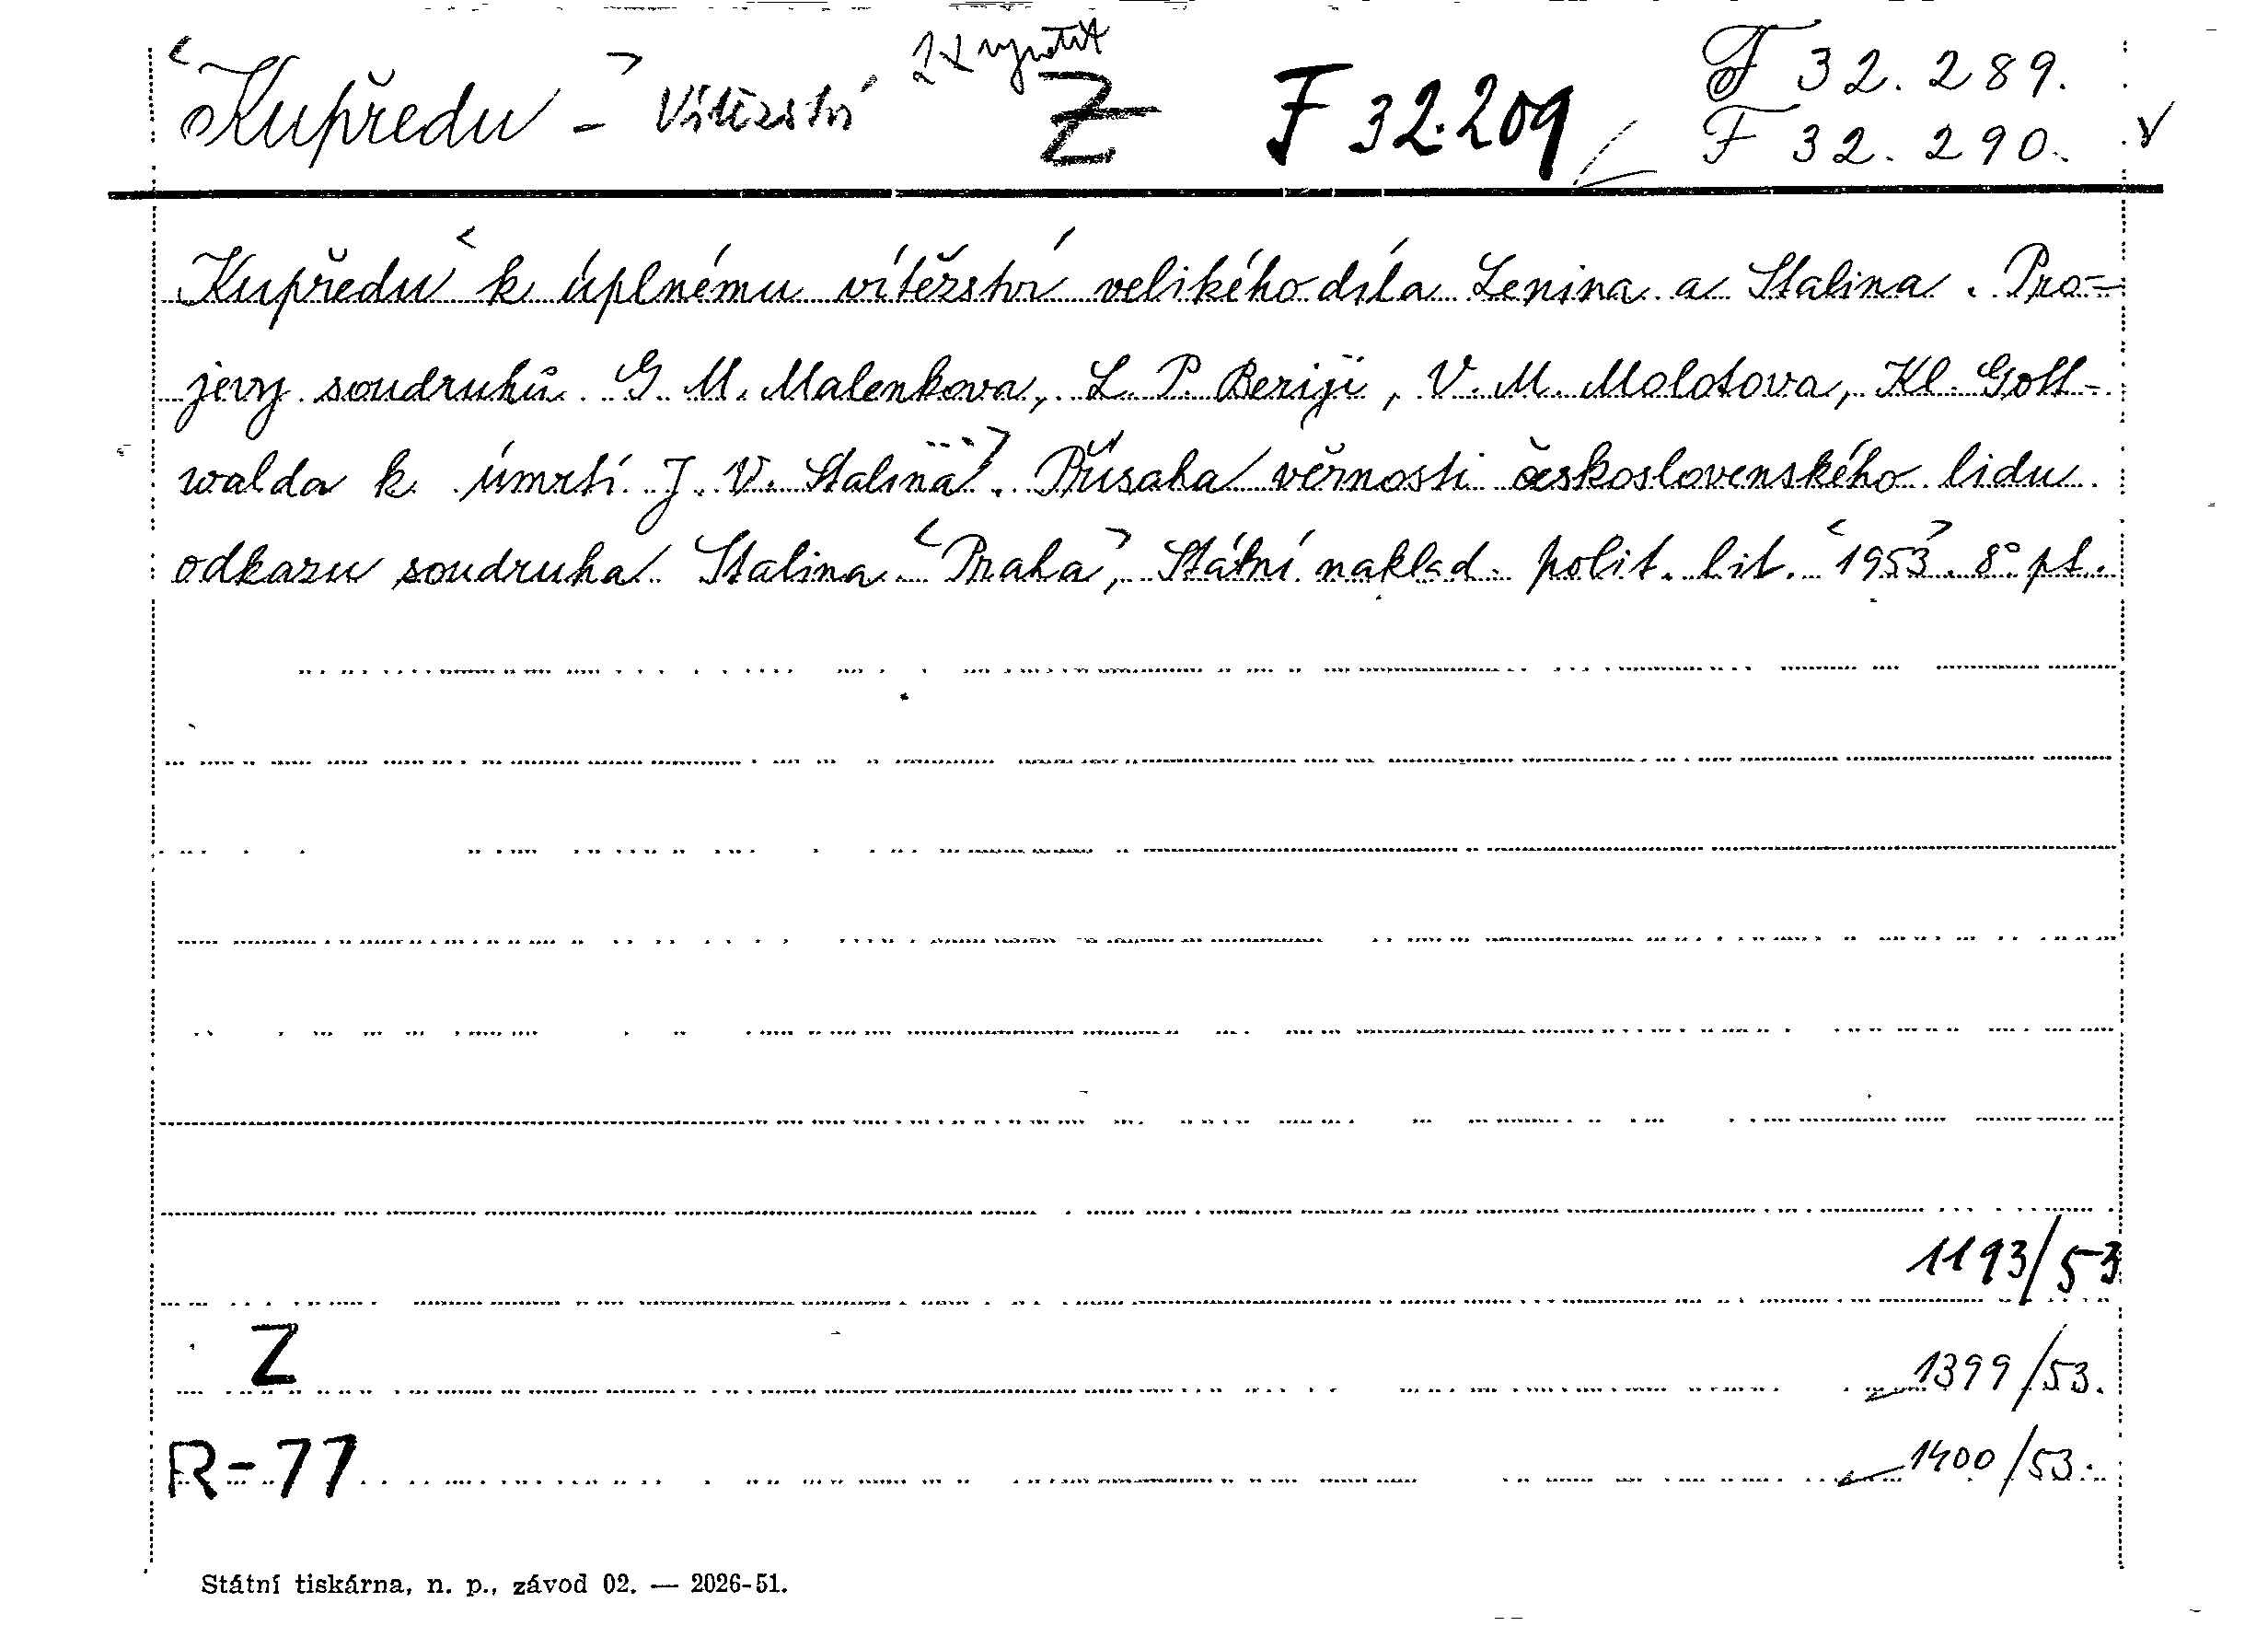 <Kupředu -> Vítězství Z F 32.209 F 32.289.
F 32.290. v
Kupředu < k úplnému vítězství velikého díla Lenina a Stalina. Pro-
jevy soudruhů G. M. Malenkova, L. P. Beriji, V. M. Molotova, Kl. Gott-
walda k úmrtí J. V. Stalina>. Přísaha věrnosti československého lidu
odkazu soudruha Stalina. <Praha>, Státní naklad. polit. lit. <1953>. 8° pt.
1193/53
Z
1399/53.
R-77
1400/53.
Státní tiskárna, n. p., závod 02. — 2026-51.